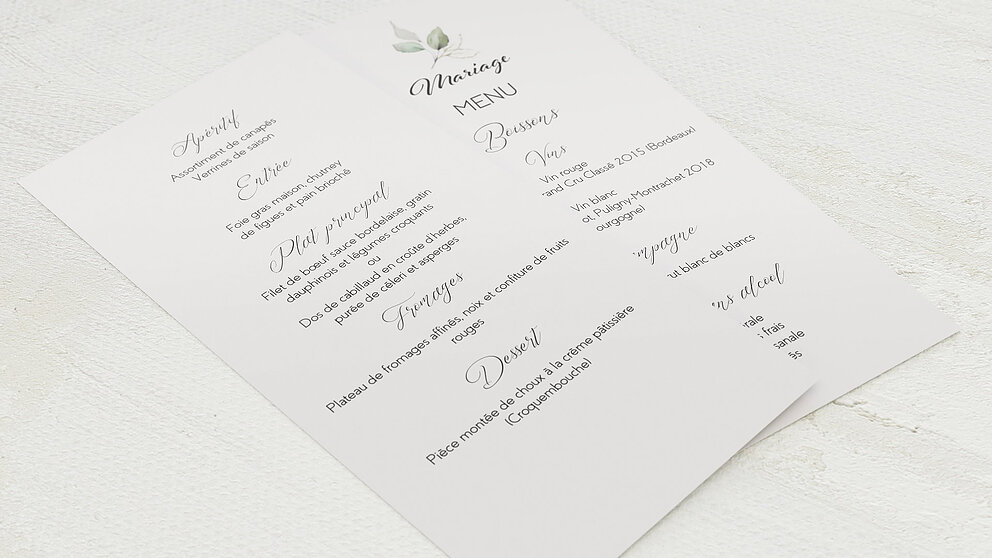 Apéritif
Assortiment de canapés
Verrines de saison
Entrée
Foie gras maison, chutney
de figues et pain brioché
Plat principal
Filet de bœuf sauce bordelaise, gratin
dauphinois et légumes croquants
ou
Dos de cabillaud en croûte d'herbes,
purée de céleri et asperges
Fromages
Plateau de fromages affinés, noix et confiture de fruits
rouges
Dessert
Pièce montée de choux à la crème pâtissière
(Croquembouche)
Mariage
MENU
Boissons
Vins
Vin rouge
and Cru Classé 2015 (Bordeaux)
Vin blanc
ot, Puligny-Montrachet 2018
ourgogne)
mpagne
ut blanc de blancs
ns alcool
rale
frais
sanale